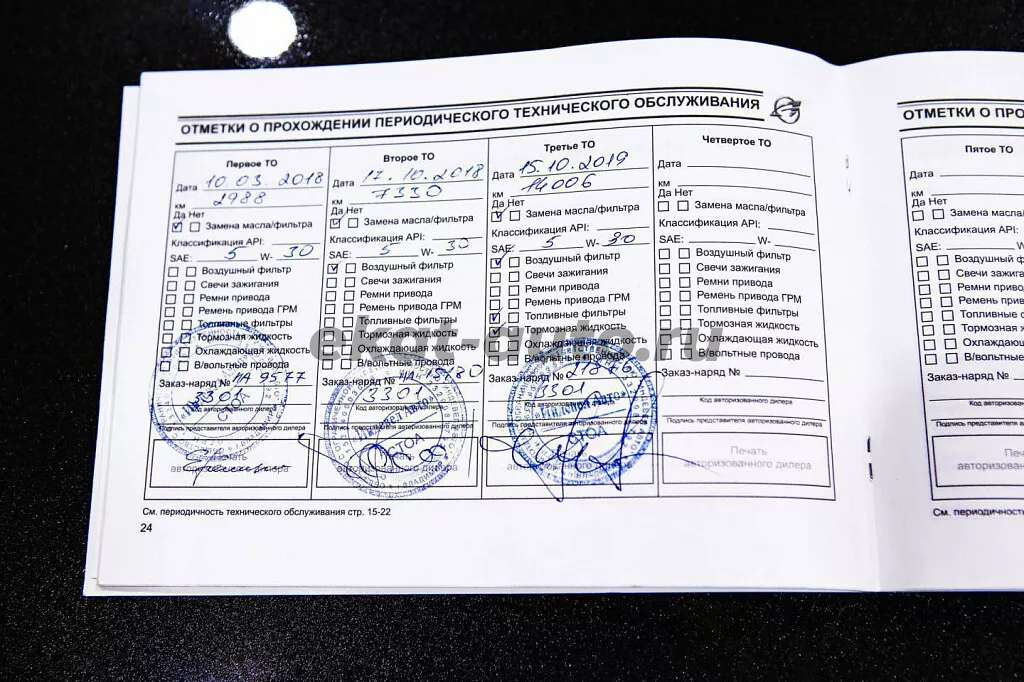 ОТМЕТКИ О ПРОХОЖДЕНИИ ПЕРИОДИЧЕСКОГО ТЕХНИЧЕСКОГО ОБСЛУЖИВАНИЯ
Первое ТО
Дата 10.03.2018
км 2988
Да Нет
Замена масла/фильтра
Классификация API:
SAE: 5 W- 30
Воздушный фильтр
Свечи зажигания
Ремни привода
Ремень привода ГРМ
Топливные фильтры
Тормозная жидкость
Охлаждающая жидкость
В/вольтные провода
Заказ-наряд № 9577
3301
Код авторизованного дилера
Подпись представителя авторизованного дилера
Второе ТО
Дата 17.10.2018
км 7330
Да Нет
Замена масла/фильтра
Классификация API:
SAE: 5 W- 30
Воздушный фильтр
Свечи зажигания
Ремни привода
Ремень привода ГРМ
Топливные фильтры
Тормозная жидкость
Охлаждающая жидкость
В/вольтные провода
Заказ-наряд №
3301
Код авторизованного дилера
Подпись представителя авторизованного дилера
СТОА
Третье ТО
Дата 15.10.2019
км 14006
Да Нет
Замена масла/фильтра
Классификация API:
SAE: 5 W- 30
Воздушный фильтр
Свечи зажигания
Ремни привода
Ремень привода ГРМ
Топливные фильтры
Тормозная жидкость
Охлаждающая жидкость
В/вольтные провода
Заказ-наряд № 21876
3301
Код авторизованного дилера
Подпись представителя авторизованного дилера
СТОА
Четвертое ТО
Дата
км
Да Нет
Замена масла/фильтра
Классификация API:
SAE: W-
Воздушный фильтр
Свечи зажигания
Ремни привода
Ремень привода ГРМ
Топливные фильтры
Тормозная жидкость
Охлаждающая жидкость
В/вольтные провода
Заказ-наряд №
Код авторизованного дилера
Подпись представителя авторизованного дилера
Печать
авторизованного дилера
См. периодичность технического обслуживания стр. 15-22
24
ОТМЕТКИ О ПРО
Пятое ТО
Дата
км
Да Нет
Замена масла/ф
Классификация API:
SAE: W-
Воздушный ф
Свечи зажига
Ремни приво
Ремень прив
Топливные ф
Тормозная ж
Охлаждающ
В/вольтные
Заказ-наряд №
Код авторизованно
Подпись представителя авт
Печ
авторизованн
См. периодичност
ekat-auto.ru